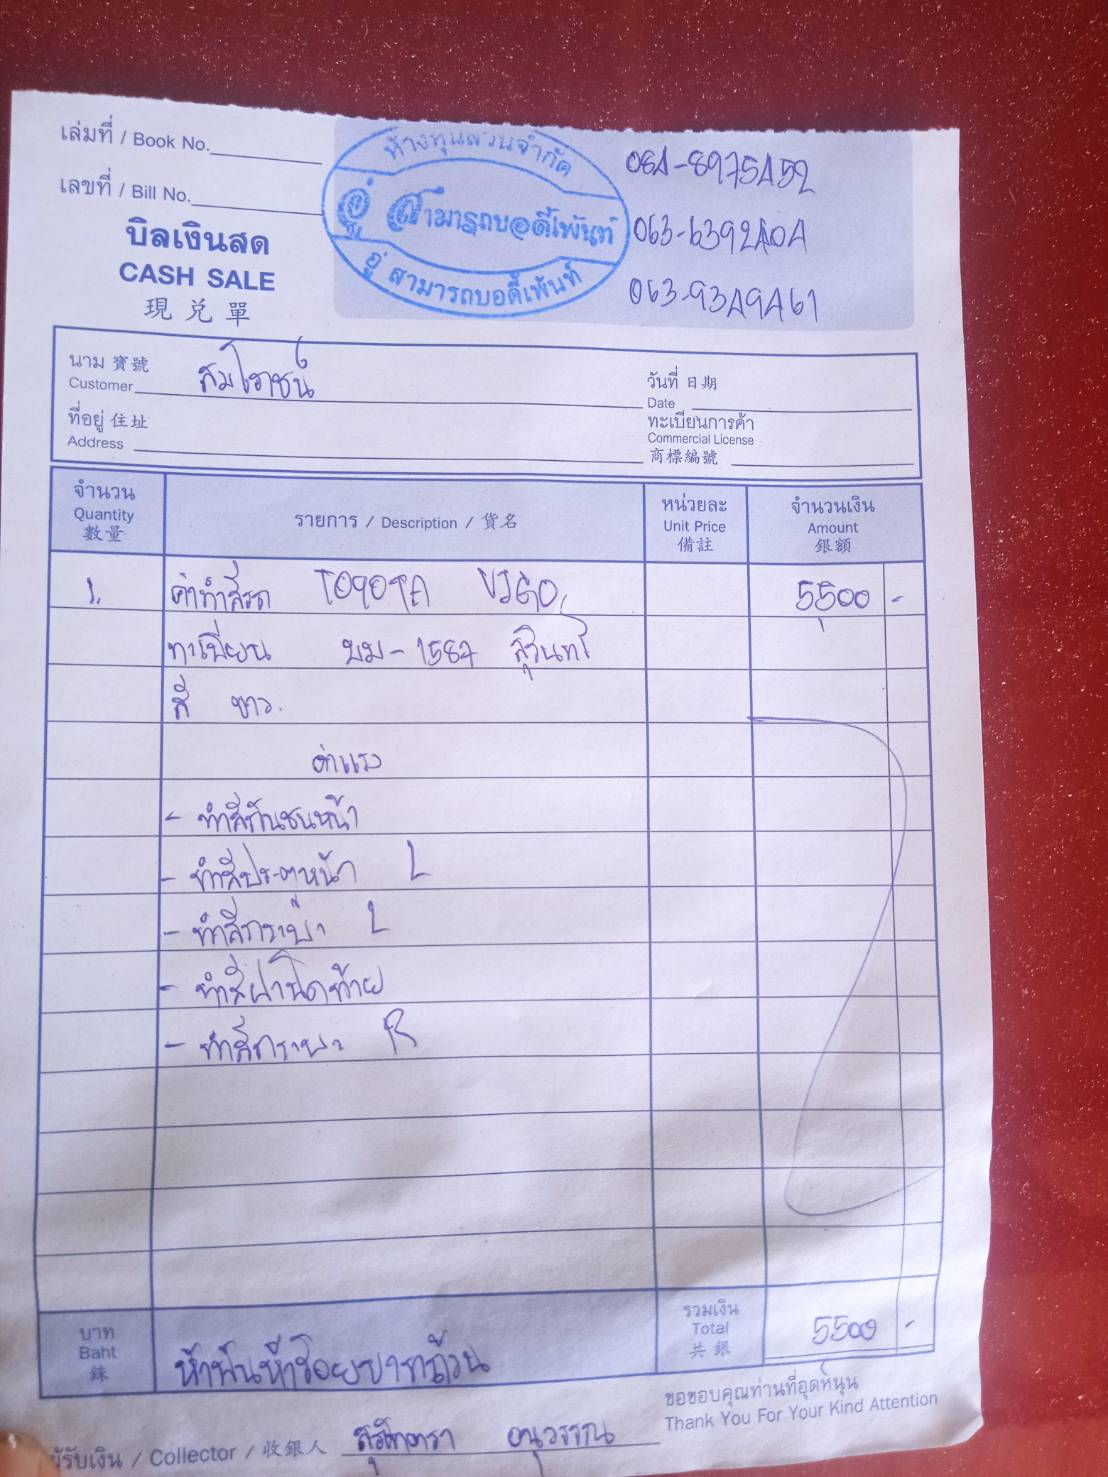 เล่มที่ / Book No.
เลขที่ / Bill No.
บิลเงินสด
CASH SALE
現兌單
ห้างหุ้นส่วนจำกัด
อู่ สามารถบอดี้เพ้นท์
อู่ สามารถบอดี้เพ้นท์
084-8975452
063-6392404
063-9349461
นาม 寶號
Customer สมโรชน์
ที่อยู่ 住址
Address
วันที่ 日期
Date
ทะเบียนการค้า
Commercial License
商標編號
จำนวน Quantity 數量
รายการ / Description / 貨名
หน่วยละ Unit Price 備註
จำนวนเงิน Amount 銀額
1. ค่าทำสีรถ TOYOTA VIGO 5500 -
ทะเบียน บม-1587 สุรินทร์
สี ขาว.
ค่าแรง
- ทำสีกันชนหน้า
- ทำสีประตูหน้า L
- ทำสีกระบะ L
- ทำสีฝาปิดท้าย
- ทำสีกระบะ R
บาท Baht 銖 ห้าพันห้าร้อยบาทถ้วน
รวมเงิน Total 共銀 5500 -
ขอขอบคุณท่านที่อุดหนุน
Thank You For Your Kind Attention
ผู้รับเงิน / Collector / 收銀人